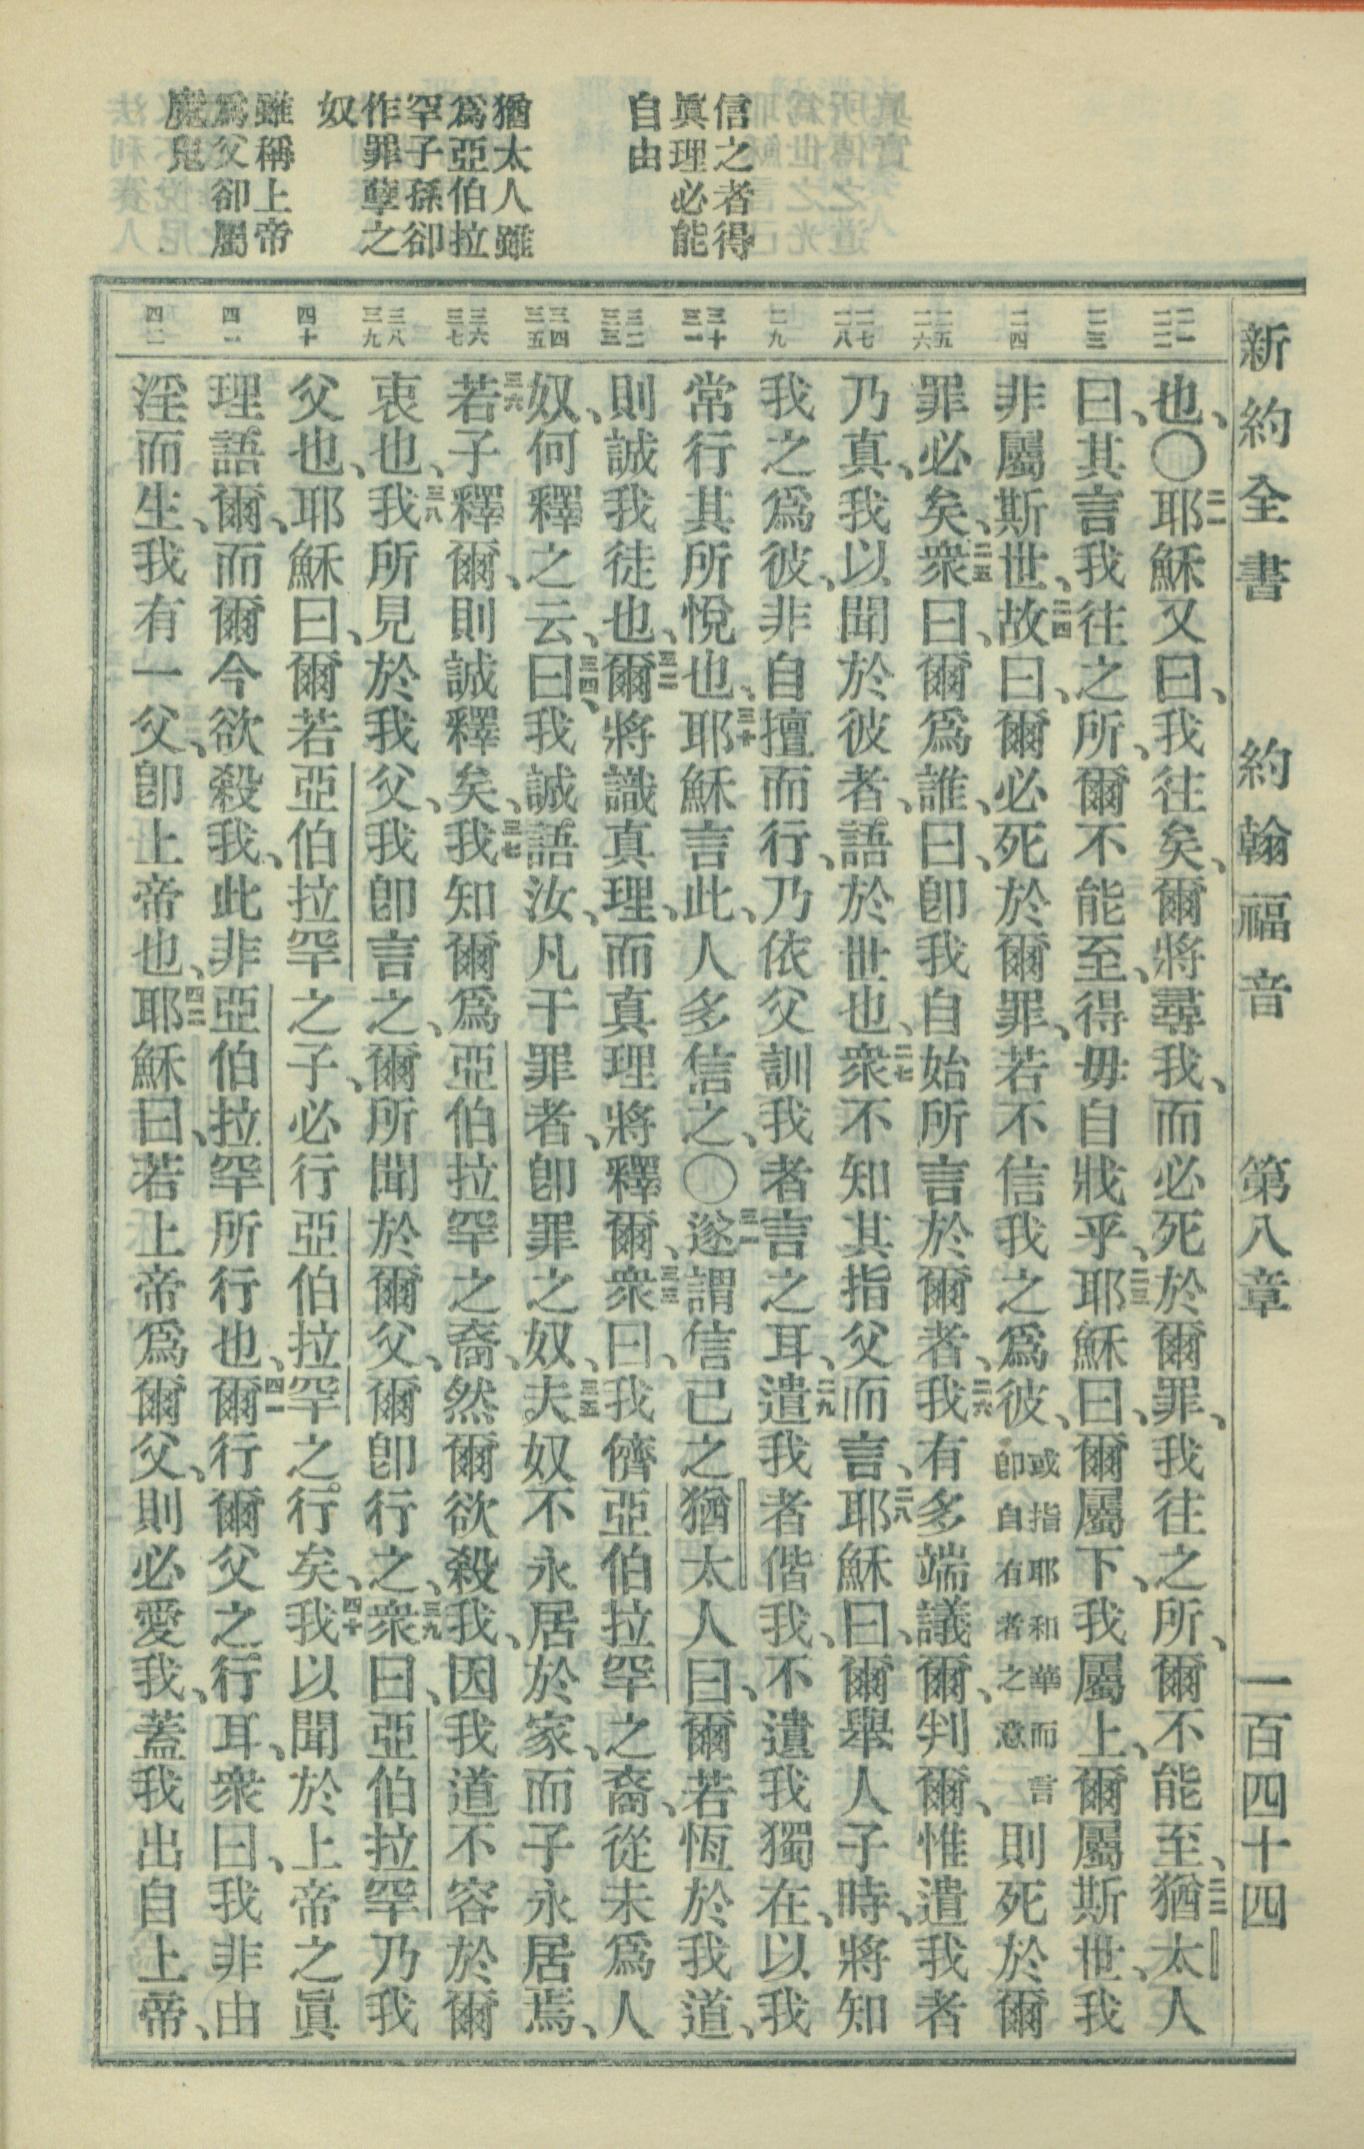 新約全書 約翰福音 第八章 一百四十四
信之者得
眞理必能
自由
猶太人雖
爲亞伯拉
罕子孫卻
作罪孽之
奴
雖稱上帝
爲父卻屬
魔鬼
二一
二二
二三
二四
二五
二六
二七
二八
二九
三十
三一
三二
三三
三四
三五
三六
三七
三八
三九
四十
四一
四二
也、〇二一耶穌又曰、我往矣、爾將尋我、而必死於爾罪、我往之所、爾不能至、二二猶太人
曰、其言我往之所、爾不能至、得毋自戕乎、二三耶穌曰、爾屬下、我屬上、爾屬斯世、我
非屬斯世、二四故曰、爾必死於爾罪、若不信我之爲彼、或指耶和華而言卽自有者之意則死於爾
罪必矣、二五衆曰、爾爲誰、曰、卽我自始所言於爾者、二六我有多端議爾、判爾、惟遣我者
乃真、我以聞於彼者、語於世也、二七衆不知其指父而言、二八耶穌曰、爾舉人子時、將知
我之爲彼、非自擅而行、乃依父訓我者言之耳、二九遣我者偕我、不遺我獨在、以我
常行其所悅也、三十耶穌言此、人多信之、〇三一遂謂信已之猶太人曰、爾若恆於我道、
則誠我徒也、三二爾將識真理、而真理將釋爾、三三衆曰、我儕亞伯拉罕之裔、從未爲人
奴、何釋之云、三四曰、我誠語汝、凡干罪者、卽罪之奴、三五夫奴不永居於家、而子永居焉、
三六若子釋爾、則誠釋矣、三七我知爾爲亞伯拉罕之裔、然爾欲殺我、因我道不容於爾
衷也、三八我所見於我父、我卽言之、爾所聞於爾父、爾卽行之、三九衆曰、亞伯拉罕乃我
父也、耶穌曰、爾若亞伯拉罕之子、必行亞伯拉罕之行矣、四十我以聞於上帝之眞
理語爾、而爾今欲殺我、此非亞伯拉罕所行也、四一爾行爾父之行耳、衆曰、我非由
淫而生、我有一父、卽上帝也、四二耶穌曰、若上帝爲爾父、則必愛我、蓋我出自上帝、